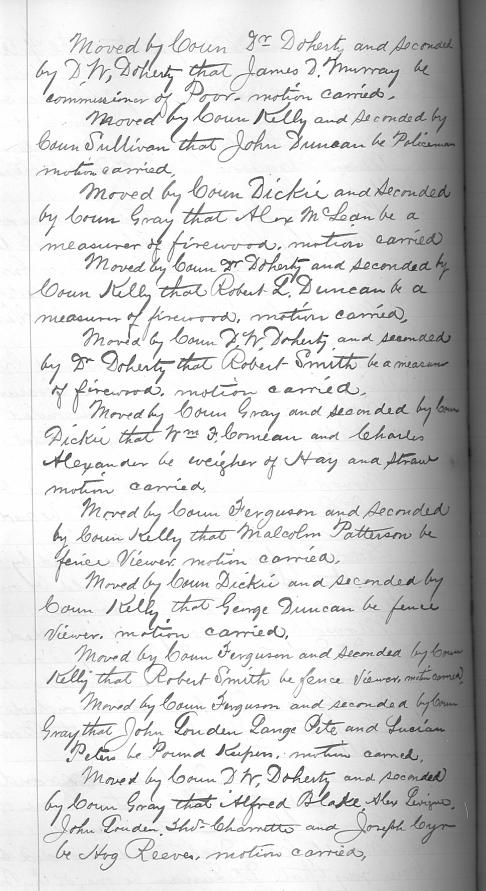 Moved by Coun Dr Doherty and seconded
by D W, Doherty that James D. Murray be
commissioner of Poor. motion carried.
Moved by Coun Kelly and seconded by
Coun Sullivan that John Duncan be Policeman
motion carried.
Moved by Coun Dickie and seconded
by Coun Gray that Alex McLean be a
measurer of firewood, motion carried
Moved by Coun Dr Doherty and seconded by
Coun Kelly that Robert L. Duncan be a
measurer of firewood, motion carried,
Moved by Coun D, W, Doherty and seconded
by Dr Doherty that Robert Smith be a measurer
of firewood. motion carried.
Moved by Coun Gray and seconded by Coun
Dickie that Wm F. Comeau and Charles
Alexander be weigher of Hay and straw
motion carried.
Moved by Coun Ferguson and seconded
by Coun Kelly that Malcolm Patterson be
fence Viewer, motion carried.
Moved by Coun Dickie and seconded by
Coun Kelly that George Duncan be fence
Viewer. motion carried.
Moved by Coun Ferguson and seconded by Coun
Kelly that Robert Smith be fence Viewer, motion carried,
Moved by Coun Ferguson and seconded by Coun
Gray that John Louden Lange Pete and Lucian
Peters be Pound Keepers, motion carried,
Moved by Coun D W, Doherty and seconded
by Coun Gray that Alfred Blake, Alex
John Louden, Thos Charrette and Joseph Cyr
be Hog Reeves, motion carried,